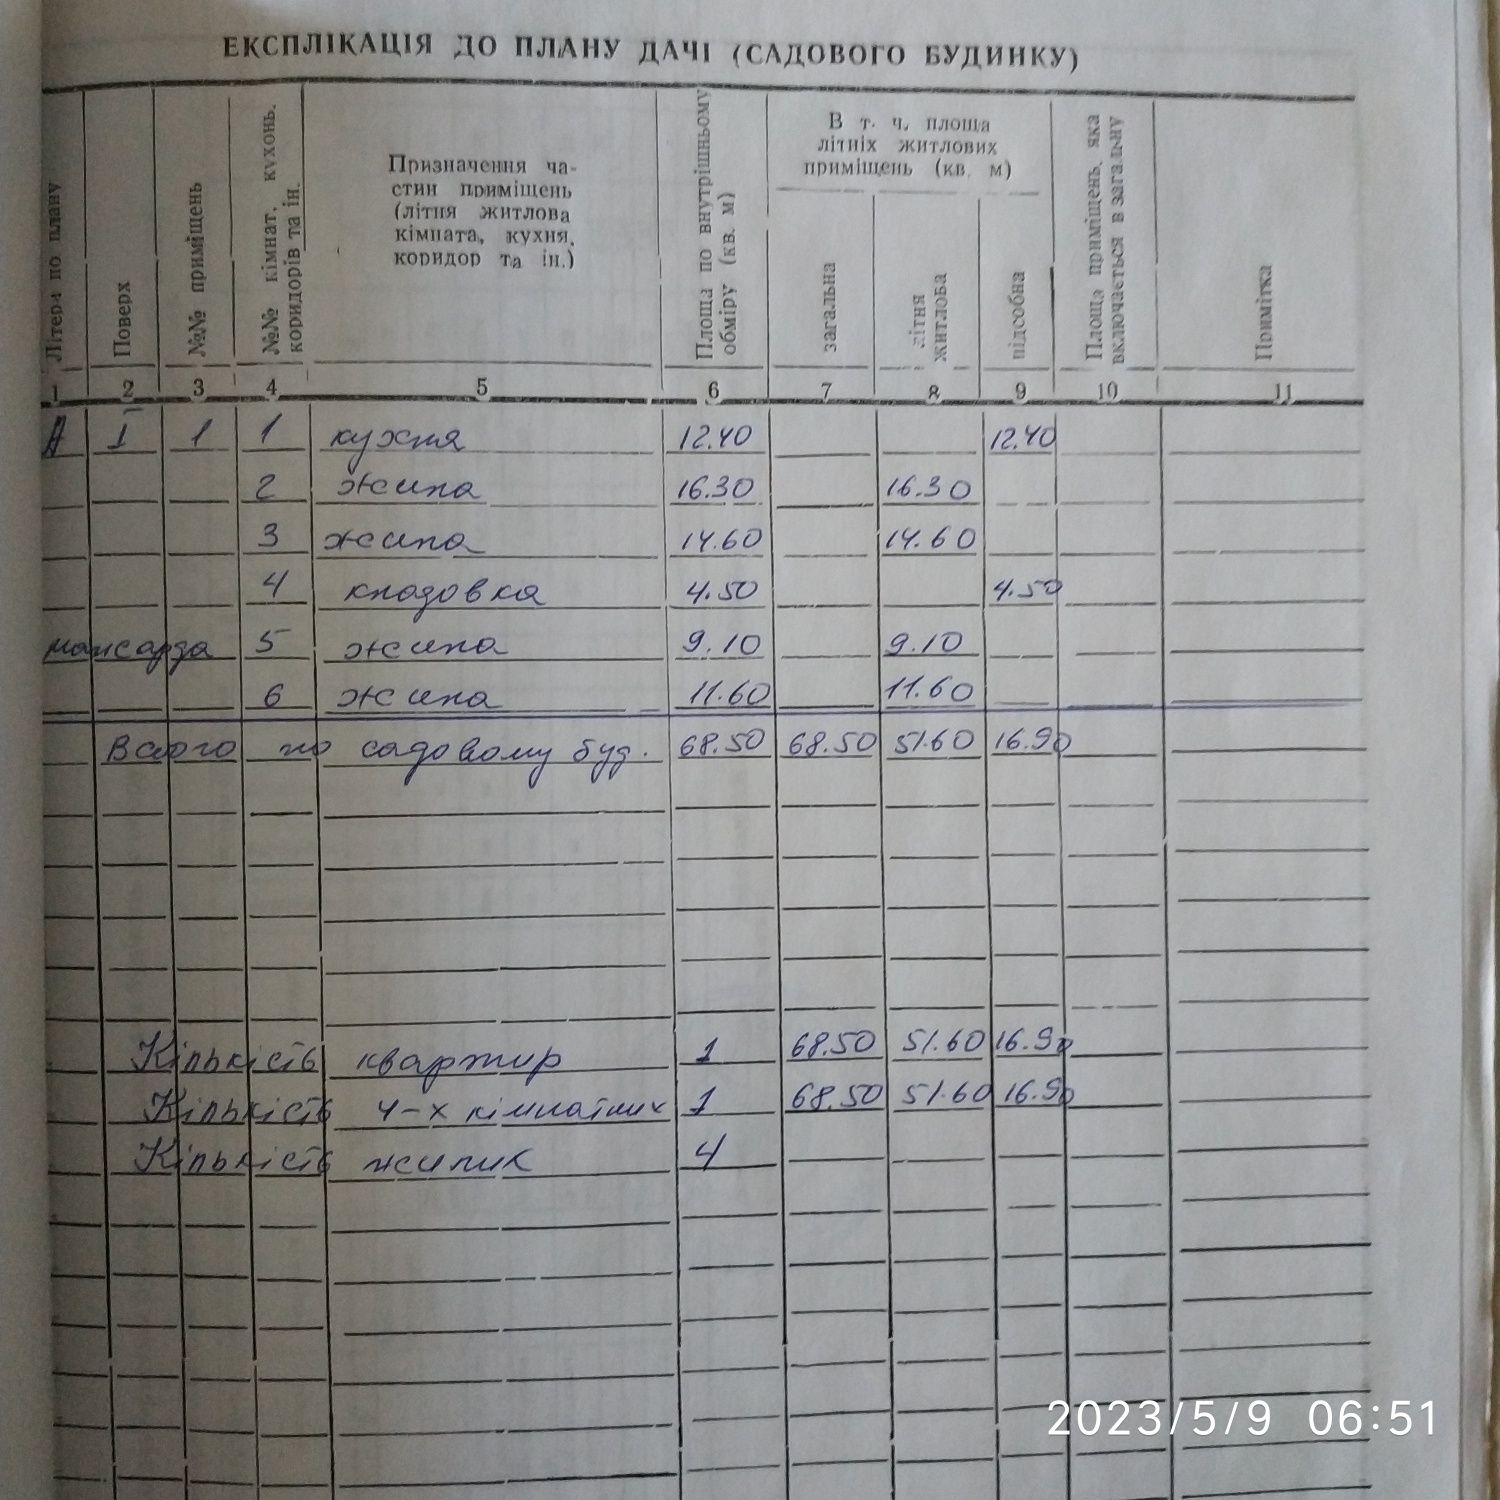 ЕКСПЛІКАЦІЯ ДО ПЛАНУ ДАЧІ (САДОВОГО БУДИНКУ)
Літера по плану
Поверх
№№ приміщень
№№ кімнат, кухонь,
коридорів та ін.
Призначення ча-
стин приміщень
(літня житлова
кімната, кухня,
коридор та ін.)
Площа по внутрішньому
обміру (кв. м)
В т. ч. площа
літніх житлових
приміщень (кв. м)
загальна
літня
житлова
підсобна
Площа приміщень, яка
включається в загальну
Примітка
1 2 3 4 5 6 7 8 9 10 11
А 1 1 1 кухня 12.40 12.40
2 жила 16.30 16.30
3 жила 14.60 14.60
4 кладовка 4.50 4.50
мансарда 5 жила 9.10 9.10
6 жила 11.60 11.60
Всього по садовому буд. 68.50 68.50 51.60 16.90
Кількість квартир 1 68.50 51.60 16.90
Кількість 4-х кімнатних 1 68.50 51.60 16.90
Кількість жилих 4
2023/5/9 06:51